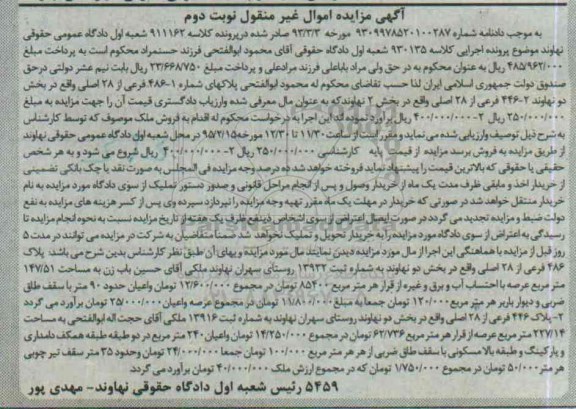 آگهی مزایده اموال غیر منقول نوبت دوم
به موجب دادنامه شماره ۹۳۰۹۹۷۸۵۲۰۱۰۰۲۸۷ مورخه ۹۳/۳/۳ صادر شده درپرونده کلاسه ۹۱۱۱۶۲ شعبه اول دادگاه عمومی حقوقی
نهاوند موضوع پرونده اجرایی کلاسه ۹۳۰۱۳۵ شعبه اول دادگاه حقوقی آقای محمود ابوالفتحی فرزند حسنمراد محکوم است به پرداخت مبلغ
۴۸۵/۹۶۲/۰۰۰ ریال به عنوان محکوم به در حق ولی مراد باباعلی فرزند مرادعلی و پرداخت مبلغ ۲۳/۶۶۸/۷۵۰ ریال بابت نیم عشر دولتی درحق
صندوق دولت جمهوری اسلامی ایران لذا حسب تقاضای محکوم له محمود ابوالفتحی پلاکهای شماره ۱-۴۸۶ فرعی از ۲۸ اصلی واقع در بخش
دو نهاوند ۲-۴۴۶ فرعی از ۲۸ اصلی واقع در بخش ۲ نهاوند که به عنوان مال معرفی شده وارزیاب دادگستری قیمت آن را جهت مزایده به مبلغ
۲۵۰/۰۰۰/۰۰۰ ریال ۲-۴۰۰/۰۰۰/۰۰۰ ریال برآورد نموده اند این اجرا به درخواست محکوم له اقدام به فروش ملک موصوف که توسط کارشناس
به شرح ذیل توصیف وارزیابی شده می نماید و مقرر است از ساعت ۱۱/۳۰ تا ۱۲/۳۰ مورخه ۹۵/۲/۱۵ در محل شعبه اول دادگاه عمومی حقوقی نهاوند
از طریق مزایده به فروش برسد مزایده از قیمت پایه کارشناسی ۲۵۰/۰۰۰/۰۰۰ ریال ۲-۴۰۰/۰۰۰/۰۰۰ ریال شروع می شود و به هر شخص
حقیقی یا حقوقی که بالاترین قیمت را پیشنهاد نماید فروخته خواهد شد ده درصد وجه مزایده فی المجلس به صورت نقد یا چک بانکی تضمینی
از خریدار اخذ و مابقی ظرف مدت یک ماه از خریدار وصول و پس از انجام مراحل قانونی و صدور دستور تملیک از سوی دادگاه مورد مزایده به نام
خریدار منتقل خواهد شد در صورتی که خریدار در مهلت یک ماه مقرر تهیه وجه مزایده را نپردازد سپرده وی پس از کسر هزینه های مزایده به نفع
دولت ضبط و مزایده تجدید می گردد در صورت ایصال اعتراض از سوی اشخاص ذینفع ظرف یک هفته از تاریخ مزایده نسبت به نحوه انجام مزایده تا
رسیدگی به اعتراض از سوی دادگاه مورد مزایده را به خریدار تحویل و تملیک نخواهد شد ضمنا متقاضیان به شرکت در مزایده می توانند در مدت ۵
روز قبل از مزایده با هماهنگی این اجرا از مال مورد مزایده دیدن نمایند مال مورد مزایده و بهای آن طبق نظر کارشناس بدین شرح می باشد: پلاک
۴۸۶ فرعی از ۲۸ اصلی واقع در بخش دو نهاوند به شماره ثبت ۱۳۹۲۲ روستای سهران نهاوند ملکی آقای حسین باب زن به مساحت ۱۴۷/۵۱
متر مربع عرصه با احتساب آب و برق و غیره از قرار هر متر مربع ۸۵۴۰۰ تومان در مجموع ۱۲/۶۰۰/۰۰۰ تومان واعیان حدود ۹۰ متر با سقف طاق
ضربی و دیوار باربر هر متر مربع ۱۲۰/۰۰۰ تومان جمعا به مبلغ ۱۱/۸۰۰/۰۰۰ تومان در مجموع عرصه واعیان ۲۵/۰۰۰/۰۰۰ تومان برآورد می گردد
۲- پلاک ۴۴۶ فرعی از ۲۸ اصلی واقع در بخش دو نهاوند روستای سهران نهاوند به شماره ثبت ۱۳۹۱۶ ملکی آقای حجت اله ابوالفتحی به مساحت
۲۲۷/۱۴ متر مربع عرصه از قرار هر متر مربع ۶۲/۷۳۶ تومان در مجموع ۱۴/۲۵۰/۰۰۰ تومان واعیان ۲۴۰ متر مربع در دو طبقه طبقه همکف دامداری
و پارکینگ و طبقه بالا مسکونی با سقف طاق ضربی از هر متر مربع ۱۰۰/۰۰۰ تومان جمعا ۲۴/۰۰۰/۰۰۰ تومان وحدود ۳۵ متر سقف تیر چوبی
هر متر ۵۰/۰۰۰ تومان در مجموع ۱/۷۵۰/۰۰۰ تومان که در مجموع ارزش ملک ۴۰/۰۰۰/۰۰۰ تومان برآورد می گردد.
۵۴۵۹ رئیس شعبه اول دادگاه حقوقی نهاوند- مهدی پور